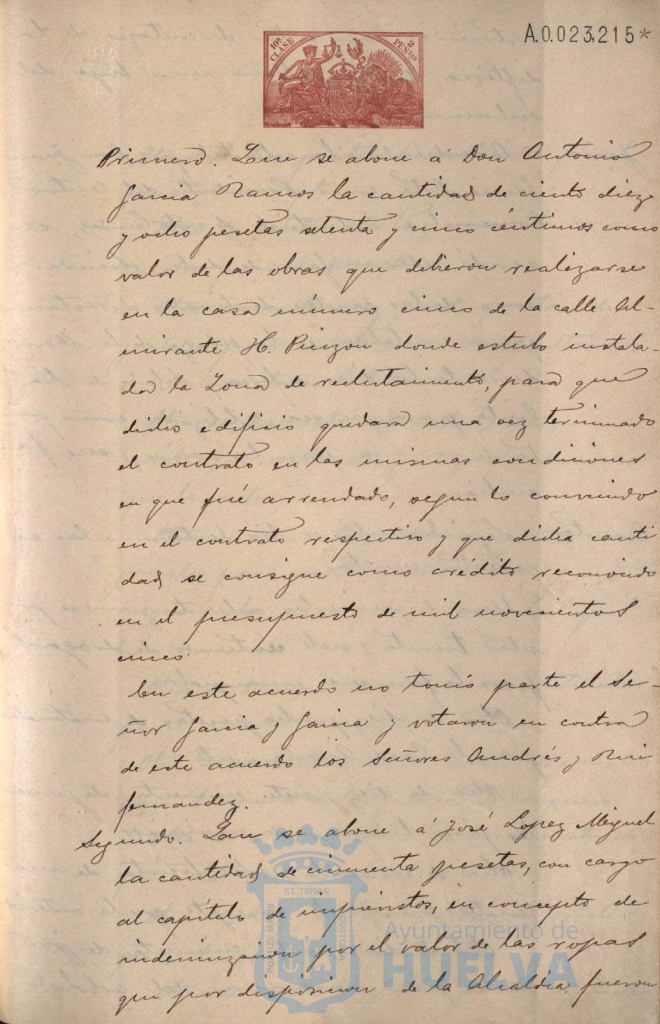 A.0.023,215*
10ª CLASE
2 PESETAS
Primero. Que se abone á Don Antonio
Garcia Ramos la cantidad de ciento diez
y ocho pesetas setenta y cinco céntimos como
valor de las obras que debieron realizarse
en la casa número cinco de la calle Al-
mirante H. Pinzon donde estubo instala-
da la Zona de reclutamiento, para que
dicho edificio quedara una vez terminado
el contrato en las mismas condiciones
en que fué arrendado, segun lo convenido
en el contrato respectivo y que dicha canti
dad se consigne como crédito reconocido
en el presupuesto de mil novecientos
cinco.
En este acuerdo no tomó parte el Se-
ñor Garcia y Garcia y votaron en contra
de este acuerdo los Señores Andrés y
fernandez.
Segundo. Que se abone á José Lopez Miguel
la cantidad de cincuenta pesetas, con cargo
al capítulo de imprevistos, en concepto de
indemnizacion por el valor de las ropas
que por disposicion de la Alcaldia, fueron
Ayuntamiento de
HUELVA